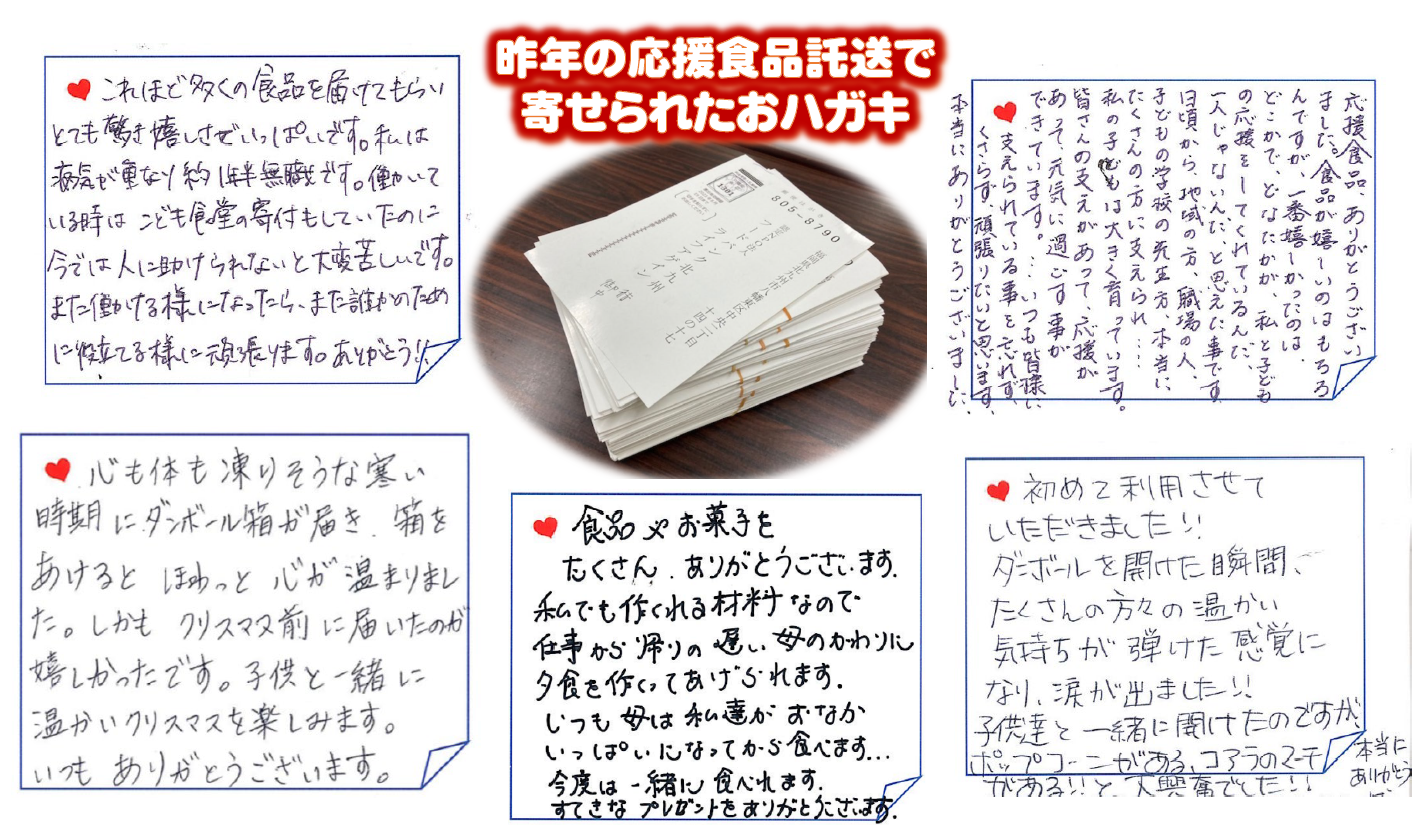 昨年の応援食品託送で
寄せられたおハガキ
これほど多くの食品を届けてもらい
とても驚き嬉しさでいっぱいです。私は
病気が重なり約1年半無職です。働いて
いる時はこども食堂の寄付もしていたのに
今では人に助けられないと大変苦しいです。
また働ける様になったら、また誰かのため
に役立てる様に頑張ります。ありがとう!!
805-8790
福岡県北九州市八幡東区中央二丁目
十四の十七
認定NPO法人
フードバンク北九州
ライフアゲイン
行
応援食品、ありがとうござい
ました。食品が嬉しいのはもちろ
んですが、一番嬉しかったのは、
どこかで、どなたかが、私と子ども
の応援をしてくれているんだ、
一人じゃないんだ、と思えた事です。
日頃から、地域の方、職場の人、
子どもの学校の先生方、本当に
たくさんの方に支えられ....
私の子どもは大きく育っています。
皆さんの支えがあって、応援が
あって、元気に過ごす事が
できています。... いつも皆様に
支えられている事を忘れず、
くさらず、頑張りたいと思います。
本当にありがとうございました。
心も体も凍りそうな寒い
時期にダンボール箱が届き、箱を
あけると ほわっと 心が温まりまし
た。しかも クリスマス前に届いたのが
嬉しかったです。子供と一緒に
温かいクリスマスを楽しみます。
いつも ありがとうございます。
食品やお菓子を
たくさん、ありがとうございます。
私でも作くれる材料なので
仕事から帰りの遅い母のかわりに
夕食を作くってあげられます。
いつも母は私達がおなか
いっぱいになってから食べます...
今度は一緒に食べれます。
すてきなプレゼントをありがとうございます。
初めて利用させて
いただきました!!
ダンボールを開けた瞬間、
たくさんの方々の温かい
気持ちが弾けた感覚に
なり、涙が出ました!!
子供達と一緒に開けたのですが、
ポップコーンがある、コアラのマーチ
がある!!と、大興奮でした!!
本当に
ありがとう